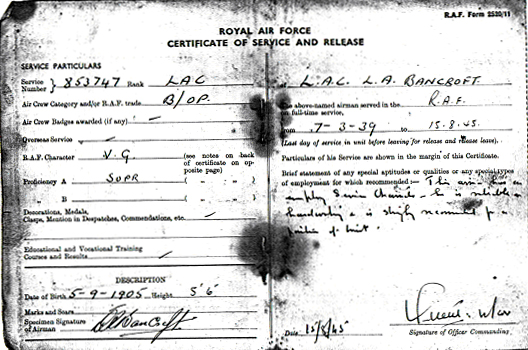 R.A.F. Form 2520/11
ROYAL AIR FORCE
CERTIFICATE OF SERVICE AND RELEASE
SERVICE PARTICULARS
Service Number } 853747 Rank LAC
Air Crew Category and/or R.A.F. trade B/OP.
Air Crew Badges awarded (if any)
Overseas Service
R.A.F. Character V.G (see notes on back of certificate on opposite page)
Proficiency A SUPR ( " " )
" B ( " " )
Decorations, Medals, Clasps, Mention in Despatches, Commendations, etc.
Educational and Vocational Training Courses and Results
DESCRIPTION
Date of Birth 5-9-1905 Height 5'6"
Marks and Scars
Specimen Signature of Airman Bancroft
of L.A.C. L.A. BANCROFT.
The above-named airman served in the R.A.F.
on full-time service,
from 7-3-39 to 15.8.45.
(Last day of service in unit before leaving for release and release leave).
Particulars of his Service are shown in the margin of this Certificate.
Brief statement of any special aptitudes or qualities or any special types
of employment for which recommended— This
he is reliable
hardworking & is recommended for a
Date 15/8/45
Signature of Officer Commanding